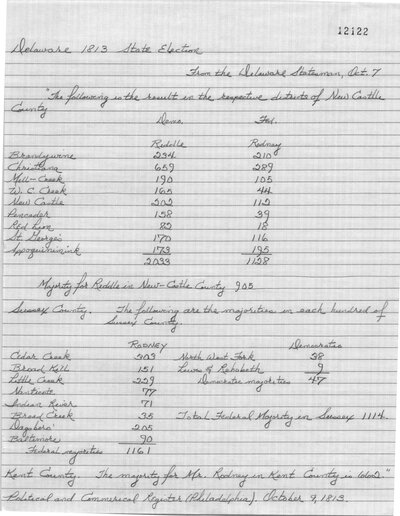 12122
Delaware 1813 State Election
From the Delaware Statesman, Oct. 7
"The following is the result in the respective districts of New Castle
County
Dems. Fed.
Riddle Rodney
Brandywine 234 210
Christiana 659 289
Mill-Creek 190 105
W. C. Creek 165 44
New Castle 202 112
Pencader 158 39
Red Lion 82 18
St. Georges 170 116
Appoquinimink 173 195
2033 1128
Majority for Riddle in New-Castle County 905
Sussex County. The following are the majorities in each hundred of
Sussex County.
RODNEY Democratic
Cedar Creek 303 North West Fork 38
Broad Kill 151 Lewes & Rehoboth 9
Little Creek 229 Democratic majorities 47
Nanticoke 77
Indian River 71
Broad Creek 35 Total Federal Majority in Sussex 1114.
Dagsboro' 205
Baltimore 90
Federal majorities 1161
Kent County The majority for Mr. Rodney in Kent County is
Political and Commerical Register (Philadelphia), October 9, 1813.